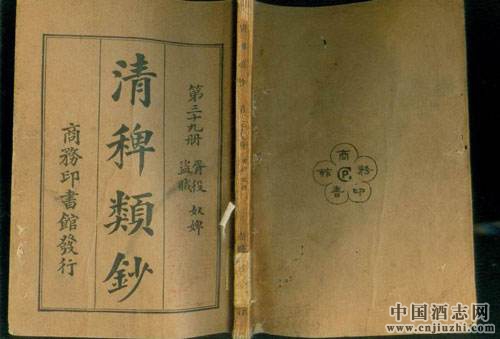 清稗類鈔
第三十九册
胥役 奴婢
盜賊
商務印書館發行
商務印書館
中国酒志网
www.cnjiuzhi.com